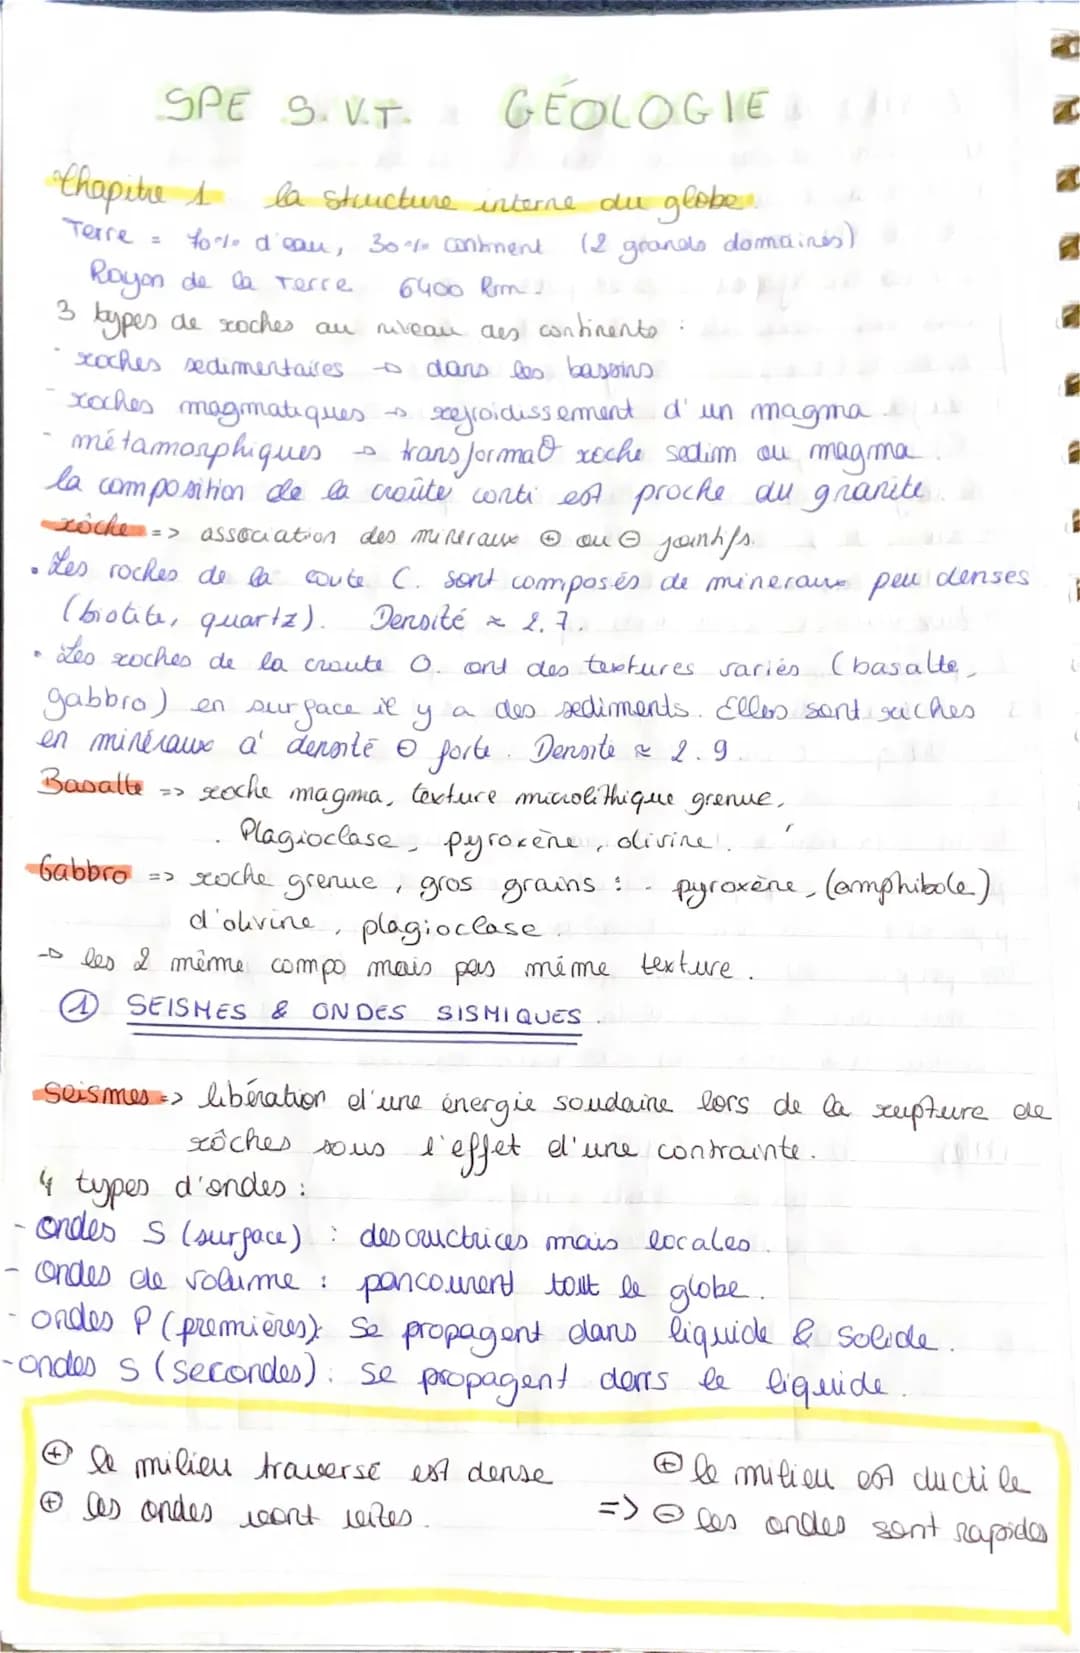 SPE S.V.T. GÉOLOGIE
Chapitre 1 la structure interne du globe.
Terre = 70% d'eau, 30% continent (2 grands domaines)
Rayon de la Terre 6400 km.
3 types de roches au niveau des continents :
- roches sedimentaires → dans les bassins
- roches magmatiques → refroidissement d'un magma.
- métamorphiques → transformaθ roche sedim ou magma.
la composition de la croûte conti est proche du granite.
roche => association des mineraux ⊕ ou ⊖ jointifs.
• Les roches de la coute C. sont composés de mineraux peu denses
(biotite, quartz). Densité ≈ 2.7.
• Les roches de la croute O. ont des textures variés (basalte,
gabbro) en surface il y a des sediments. Elles sont riches
en minéraux à densité ⊖ forte. Densité ≈ 2.9.
Basalte => roche magma, texture microlithique grenue,
. Plagioclase, pyroxène, olivine.
Gabbro => roche grenue, gros grains : - pyroxène, (amphibole)
d'olivine, plagioclase.
→ les 2 même compo mais pas même texture.
① SEISMES & ONDES SISMIQUES.
Seismes => libération d'une énergie soudaine lors de la rupture de
roches sous l'effet d'une contrainte.
4 types d'ondes :
- ondes S (surface) : descructrices mais locales.
- ondes de volume : parcourent tout le globe.
- ondes P (premières): Se propagent dans liquide & solide.
- ondes S (secondes) : Se propagent dans le liquide.
⊕ le milieu traversé est dense
⊕ les ondes vont vites.
⊕ le milieu est ductile
=> ⊖ les ondes sont rapides